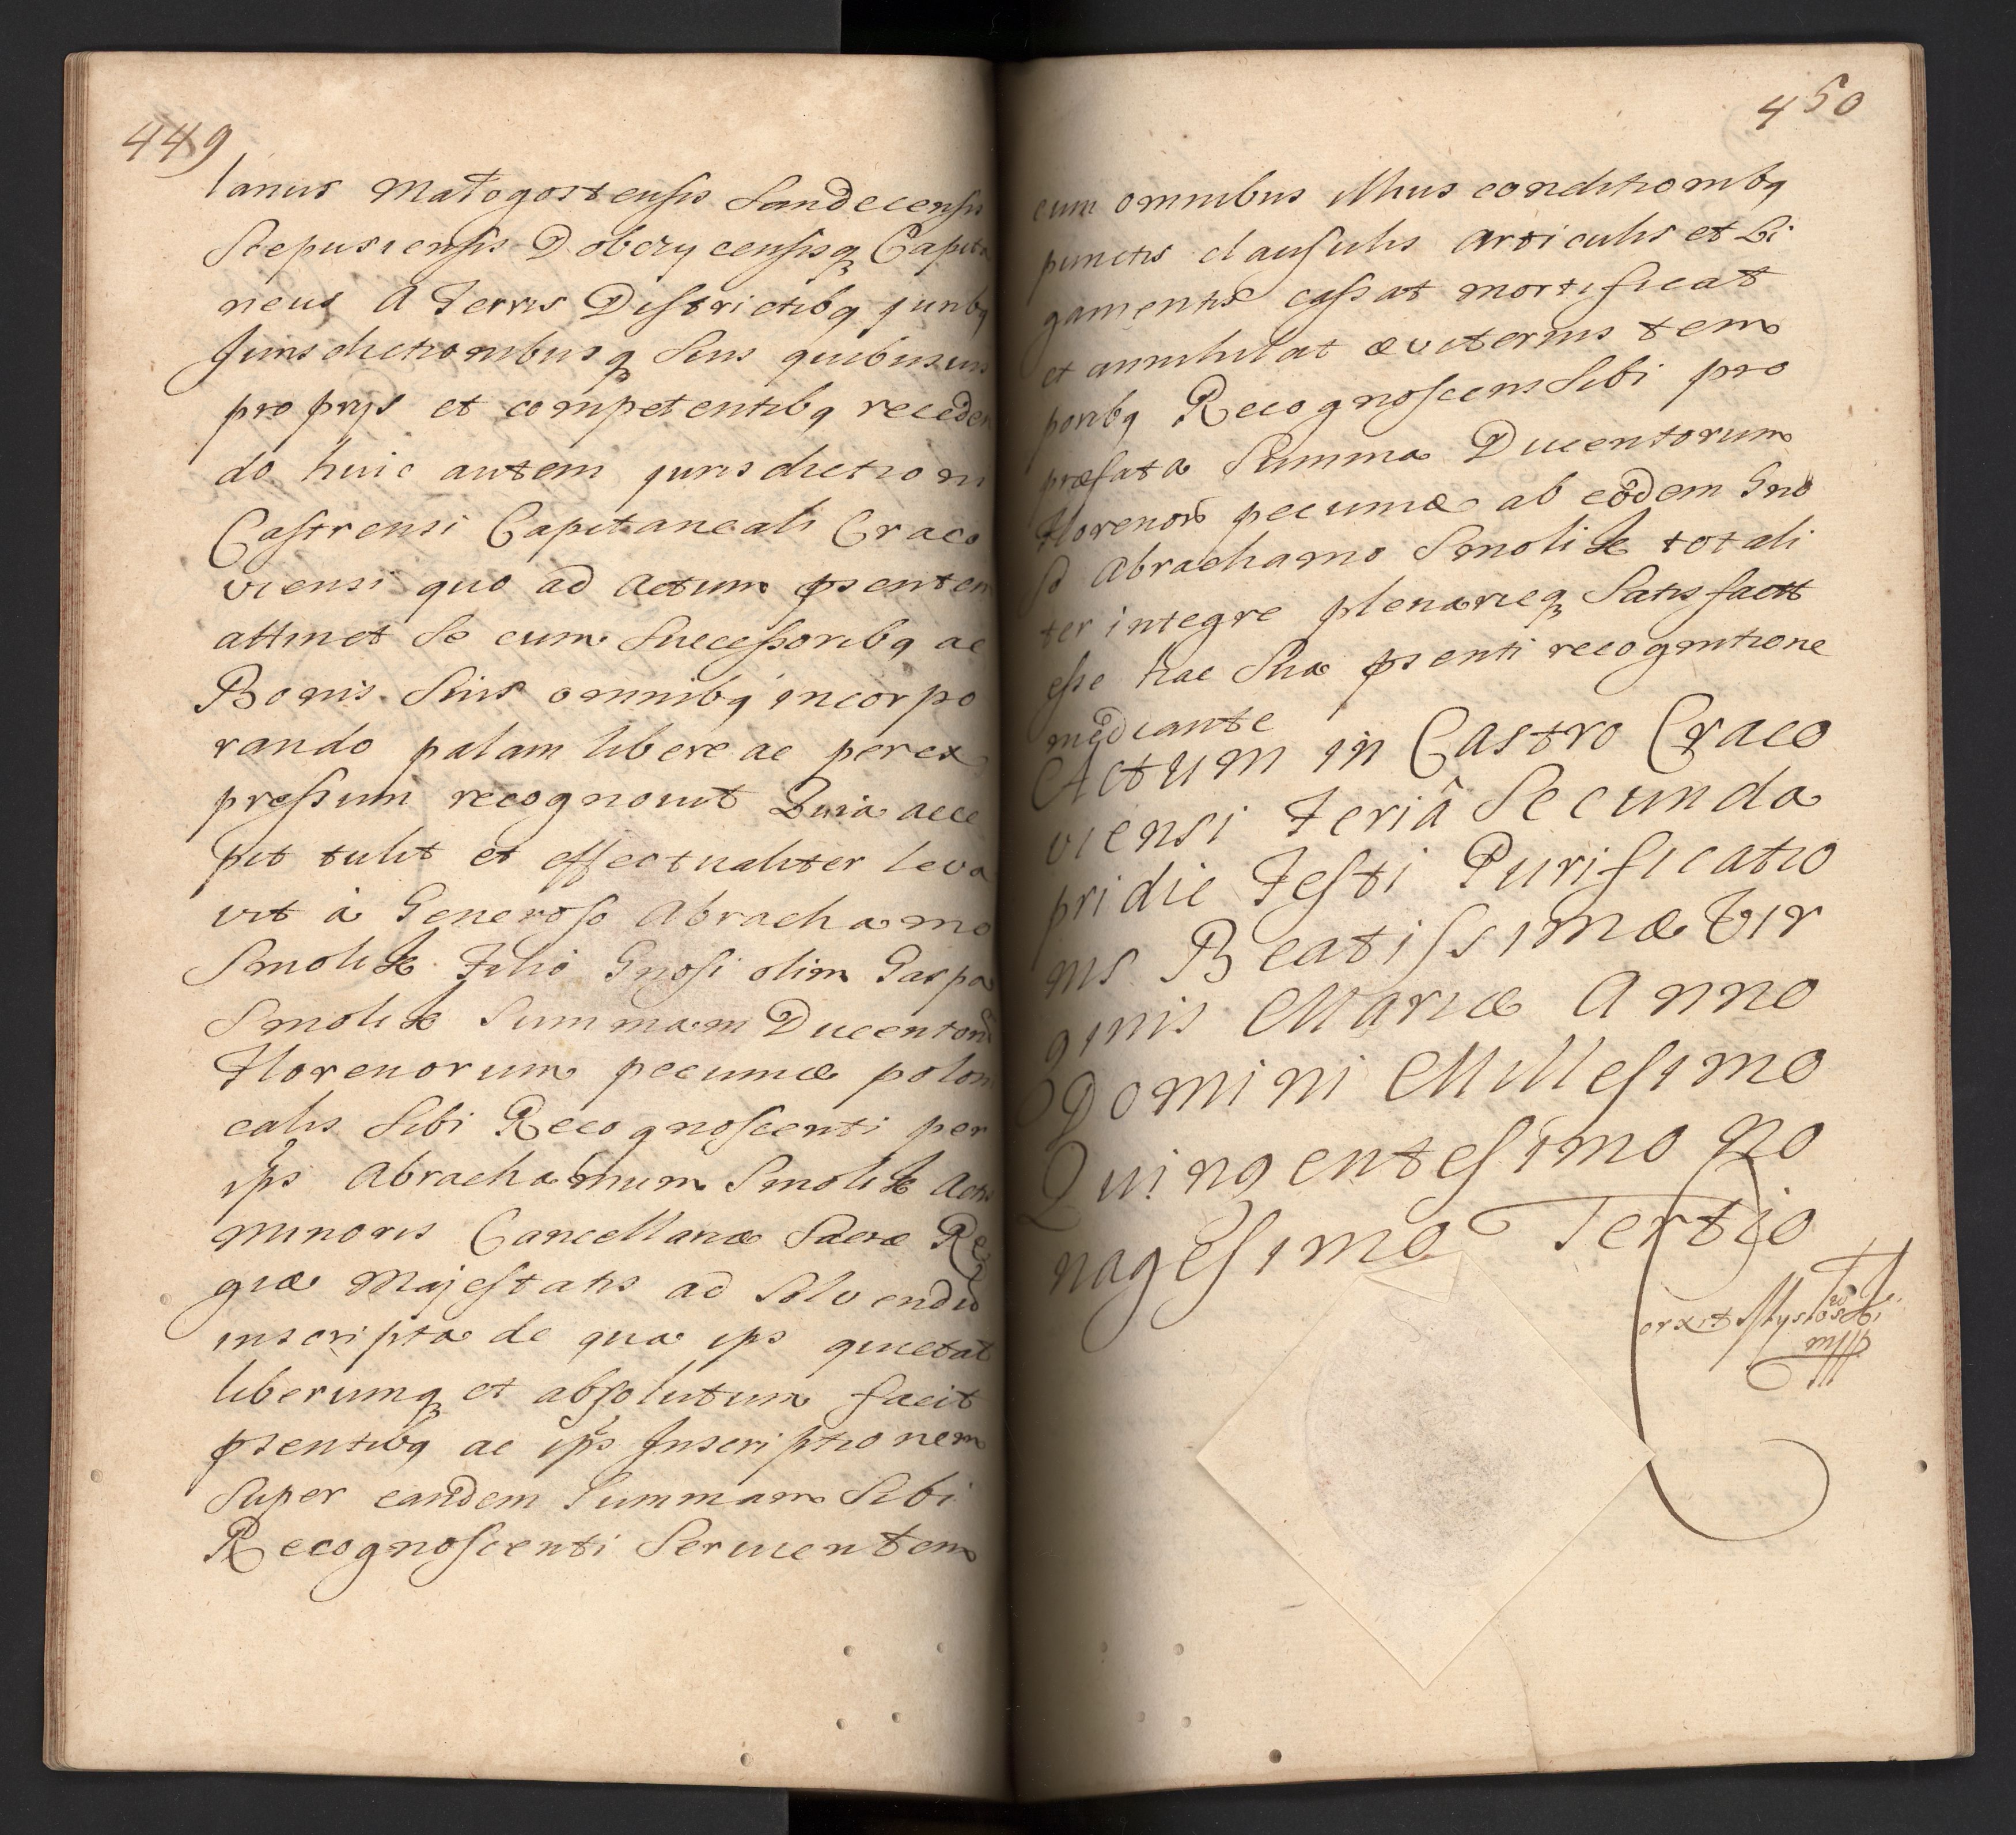 449
lanus Małogostensis Sandecensis
Scepusiensis Dobczycensisq Capita
neus A Terris Districtibq junbq
Jurisdictionibusq Suis quibusuis
proprijs et competentibq receden
do huic autem jurisdictioni
Castrensi Capitaneali Craco
viensi quo ad Actum psentem
attinet Se cum Successoribq ac
Bonis Suis omnibq incorpo
rando palam libere ac per ex
pressum recognovit Quia acce
pit tulit et effectualiter leva
vit à Generoso Abrachamo
Smolik Filio Gnosi olim Gaspa
Smolik Summam Ducentorũ
Florenorum pecuniæ poloni
calis Sibi Recognoscenti per
ips Abrachamum Smolik Actis
minoris Cancellariæ Sacræ Re
giæ Majestatis ad Solvendũ
inscripta de qua ips quietat
liberumq et absolutum facit
psentibq ac ips Inscriptionem
Super eandem Summam Sibi
Recognoscenti Servientem
450
cum omnibus illius conditionibq
punctis clausulis Articulis et Li
gamentis cassat mortificat
et annihilat æviternis tem
poribq Recognoscens Sibi pro
præfata Summa Ducentorum
florenorũ pecuniæ ab eodem Gno
Abrachamo Smolik totali
ter integre plenarieq Satisfactt
esse hac Sua psenti recognitione
mediante
Actum in Castro Craco
viensi Feriâ Secunda
pridie Festi Purificatio
nis Beatissimæ Vir
ginis Mariæ Anno
Domini Millesimo
Quingentesimo No
nagesimo Tertio